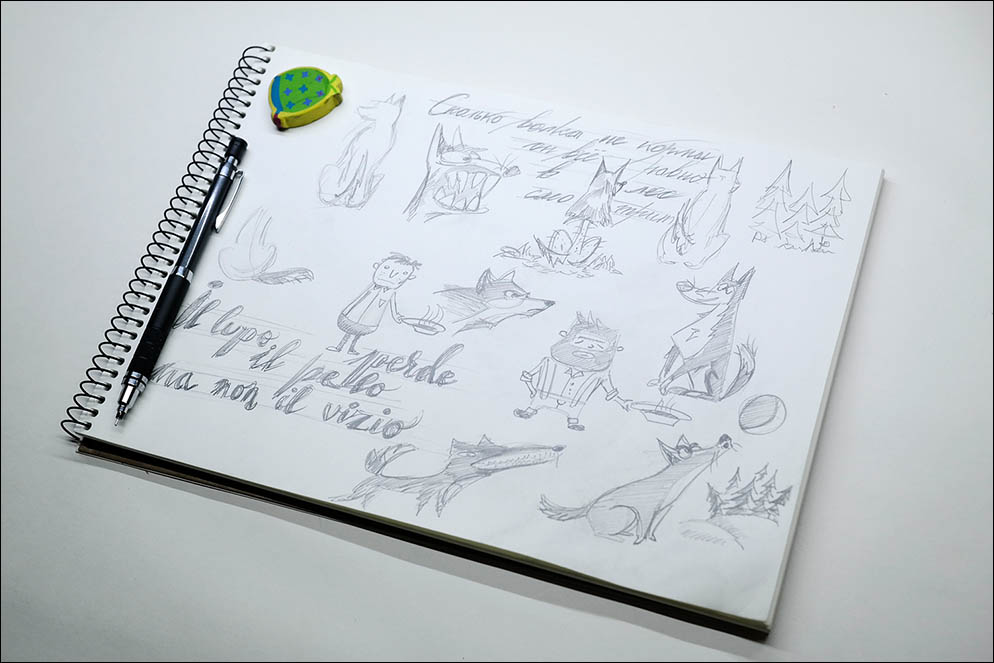 Сколько волка не корми
он всё равно
в лес
смо
Il lupo perde
il pelo
ma non il vizio